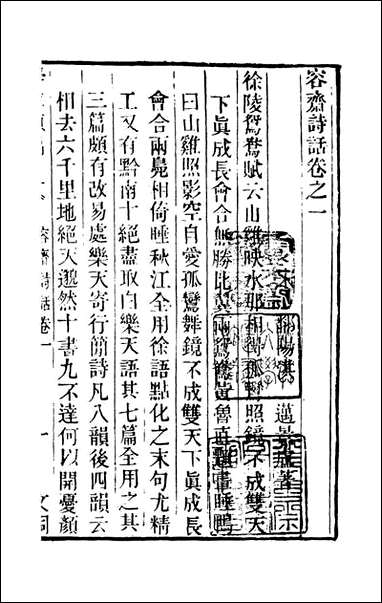 容齋詩話卷之一
鄱陽洪 邁景盧著
徐陵鴛鴦賦云山雞映水那相得孤鸞照鏡不成雙天
下眞成長會合無勝比翼兩鴛鴦黃魯直題畫睡鴨
曰山雞照影空自愛孤鸞舞鏡不成雙天下眞成長
會合兩鳧相倚睡秋江全用徐語點化之末句尤精
工又有黔南十絕盡取白樂天語其七篇全用之其
三篇頗有改易處樂天寄行簡詩凡八韻後四韻云
相去六千里地絕天邈然十書九不達何以開憂顏
容齋詩話卷一
一